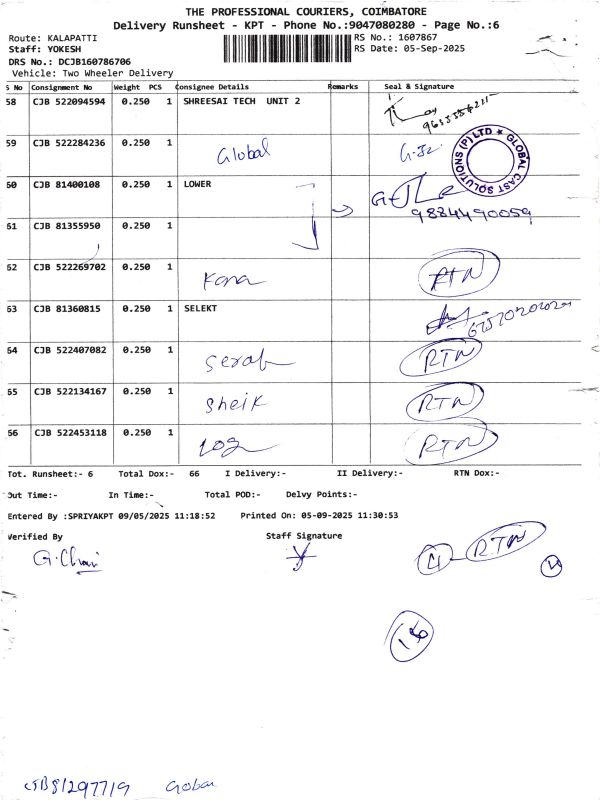 THE PROFESSIONAL COURIERS, COIMBATORE
Delivery Runsheet - KPT - Phone No.:9047080280 - Page No.:6
Route: KALAPATTI RS No.: 1607867
Staff: YOKESH RS Date: 05-Sep-2025
DRS No.: DCJB160786706
Vehicle: Two Wheeler Delivery
S No Consignment No Weight PCS Consignee Details Remarks Seal & Signature
58 CJB 522094594 0.250 1 SHREESAI TECH UNIT 2
59 CJB 522284236 0.250 1 Global
GLOBAL CAST SOLUTIONS (P) LTD ★
60 CJB 81400108 0.250 1 LOWER
9884490059
61 CJB 81355950 0.250 1
62 CJB 522269702 0.250 1 Kana RTN
63 CJB 81360815 0.250 1 SELEKT
64 CJB 522407082 0.250 1 Serah RTN
65 CJB 522134167 0.250 1 Sheik RTN
66 CJB 522453118 0.250 1 RTN
Tot. Runsheet:- 6 Total Dox:- 66 I Delivery:- II Delivery:- RTN Dox:-
Out Time:- In Time:- Total POD:- Delvy Points:-
Entered By :SPRIYAKPT 09/05/2025 11:18:52 Printed On: 05-09-2025 11:30:53
Verified By Staff Signature
4 RTN
16
CJB81297719 Global